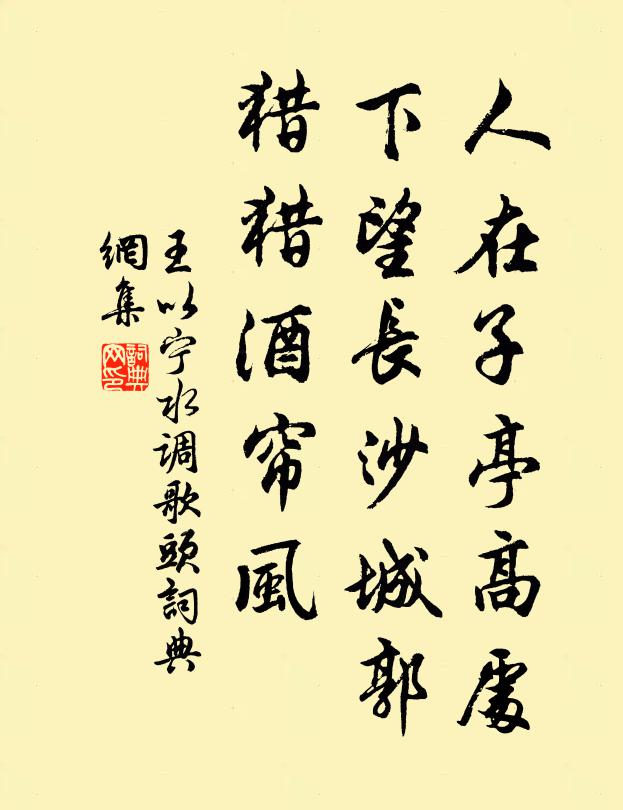 人在子亭高處
下望長沙城郭
猎猎酒帘風
王以宁水调歌頭詞典
網集
詞典
网印